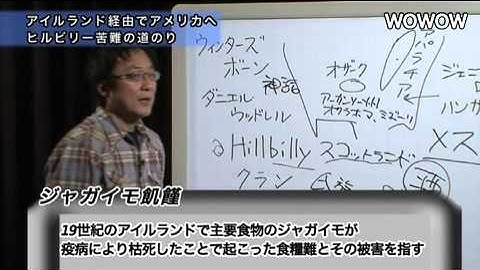 アイルランド経由でアメリカへ
ヒルビリー苦難の道のり
WOWOW
ウィンターズ
ボーン
神話
ダニエル
ウッドレル
オザーク
アパラチア
アーカンソー
オクラホマ、ミズーリ
ジェニ
バンガ
Hillbilly
スコットランド
メス
クラン
氏族
酒
ジャガイモ飢饉
19世紀のアイルランドで主要食物のジャガイモが
疫病により枯死したことで起こった食糧難とその被害を指す